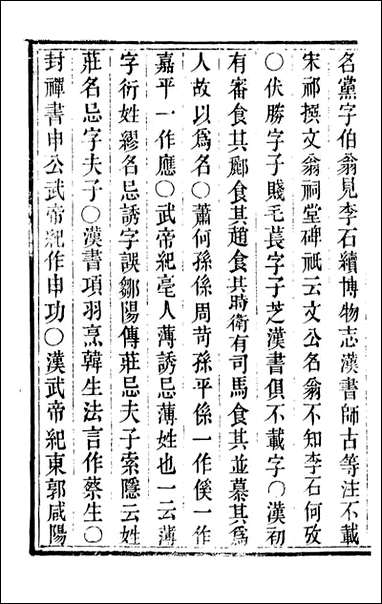 名黨字伯翁見李石續博物志漢書師古等注不載
宋祁撰文翁祠堂碑祇云文公名翁不知李石何攷
〇伏勝字子賤毛萇字子芝漢書俱不載字〇漢初
有審食其酈食其趙食其時衛有司馬食其並慕其爲
人故以爲名〇蕭何孫係周苛孫平係一作傒一作
嘉平一作應〇武帝紀亳人薄誘忌薄姓也一云薄
字衍姓繆名忌誘字誤鄒陽傳莊忌夫子索隱云姓
莊名忌字夫子〇漢書項羽烹韓生法言作蔡生〇
封禪書申公武帝紀作申功〇漢武帝紀東郭咸陽